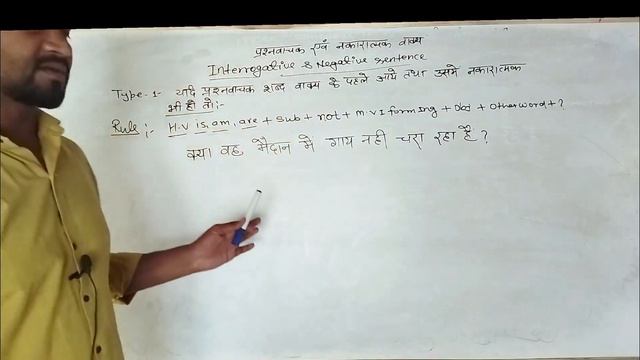 प्रश्नवाचक एवं नकारात्मक वाक्य
Interrogative & Negative sentence
Type-1- यदि प्रश्नवाचक शब्द वाक्य के पहले आये तथा उसमे नकारात्मक
भी हो तो:-
Rule:- H.V is, am, are + sub + not + m.v I form ing + obj + other word + ?
क्या वह मैदान मे गाय नही चरा रहा है ?